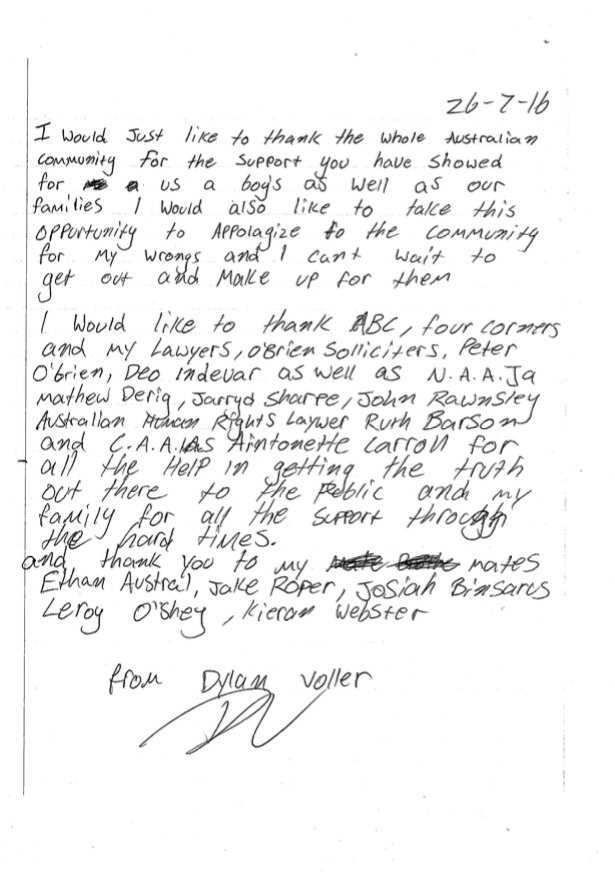 26-7-16
I would just like to thank the whole Australian
community for the support you have showed
for us a boys as well as our
families I would also like to take this
opportunity to Appolagize to the community
for my wrongs and I cant wait to
get out and make up for them
I would like to thank ABC, four corners
and my Lawyers, O'Brien Solliciters, Peter
O'brien, Deo Indevar as well as N.A.A.Ja
Mathew Derig, Jarryd Sharpe, John Rawnsley
Australian Human Rights Laywer Ruth Barson
and C.A.A.LAS Aintonette Carroll for
all the Help in getting the truth
out there to the Public and my
family for all the support through
the hard times.
and thank you to my mates
Ethan Austral, Jake Roper, Josiah Binsarus
Leroy O'Shey, Kieran Webster
from Dylan Voller